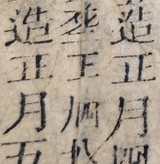 造正月四
丞王
造正月五